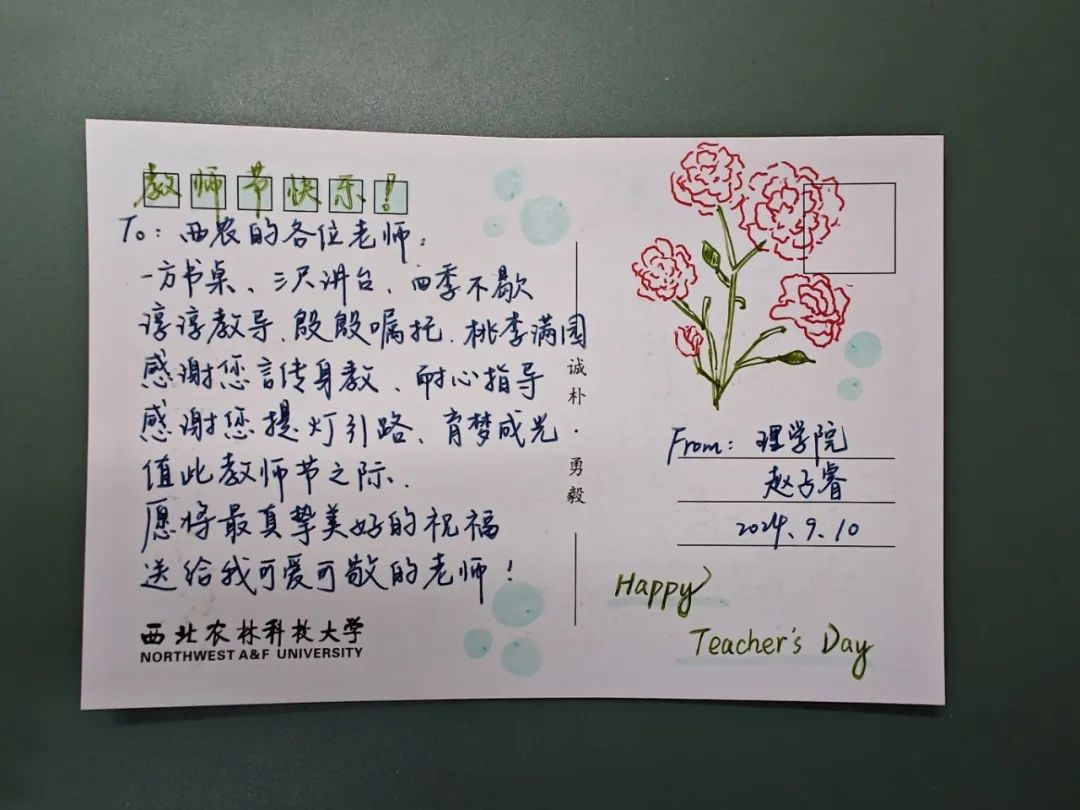 教师节快乐！
To：西农的各位老师：
一方书桌、三尺讲台、四季不歇
谆谆教导、殷殷嘱托、桃李满园
感谢您言传身教、耐心指导
感谢您提灯引路、育梦成光
值此教师节之际、
愿将最真挚美好的祝福
送给我可爱可敬的老师！
西北农林科技大学
NORTHWEST A&F UNIVERSITY
诚朴·勇毅
From：理学院
赵子睿
2024.9.10
Happy
Teacher's Day